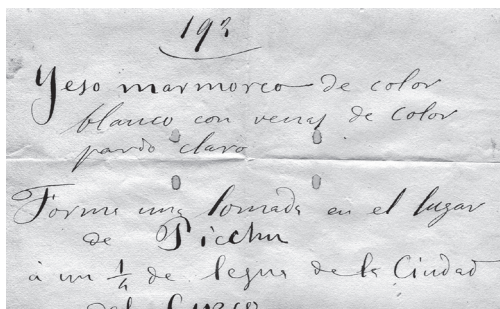 193
Yeso marmoreo de color
blanco con venas de color
pardo claro
Forma una lomada en el lugar
de Picchu
á un 1/4 de legua de la Ciudad
del Cuzco